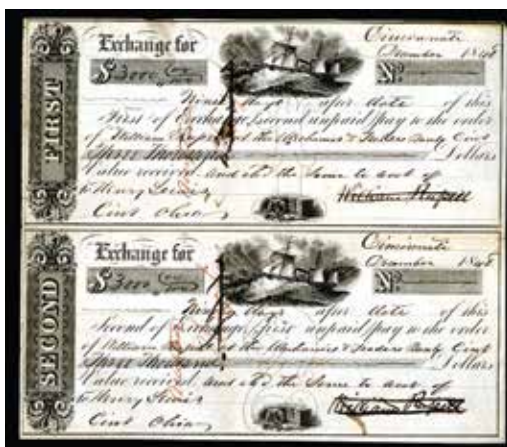 FIRST
Exchange for
Cincinnati
$ 3000
December 1848
No.
Ninety days after date of this
First of Exchange, Second unpaid, pay to the order
of William at the Mechanics & Traders Cint
Three Thousand Dollars
Value received and the same to acct of
to Henry Lewis
Cint Ohio
SECOND
Exchange for
Cincinnati
$ 3000
December 1848
No.
Ninety days after date of this
Second of Exchange, First unpaid, pay to the order
of William at the Mechanics & Traders Cint
Three Thousand Dollars
Value received and the same to acct of
to Henry Lewis
Cint Ohio